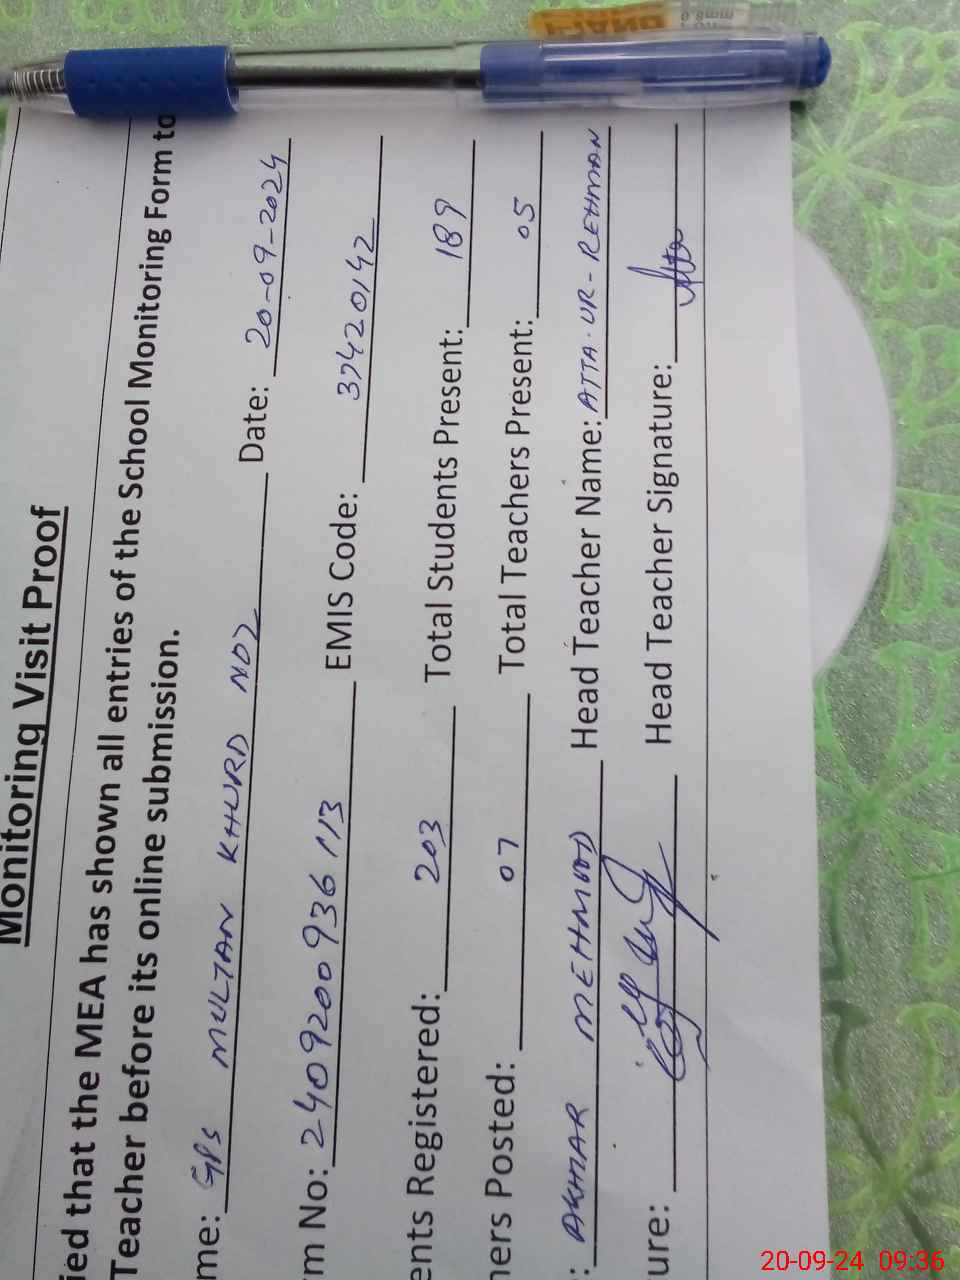 Monitoring Visit Proof
ied that the MEA has shown all entries of the School Monitoring Form to
Teacher before its online submission.
me: GPS MULTAN KHURD NO2 Date: 20-09-2024
rm No: 2409200936113 EMIS Code: 37420142
ents Registered: 203 Total Students Present: 189
hers Posted: 07 Total Teachers Present: 05
: AKHTAR MEHMOOD Head Teacher Name: ATTA-UR-REHMAN
ure: Head Teacher Signature: Atta
PIANO
20-09-24 09:36